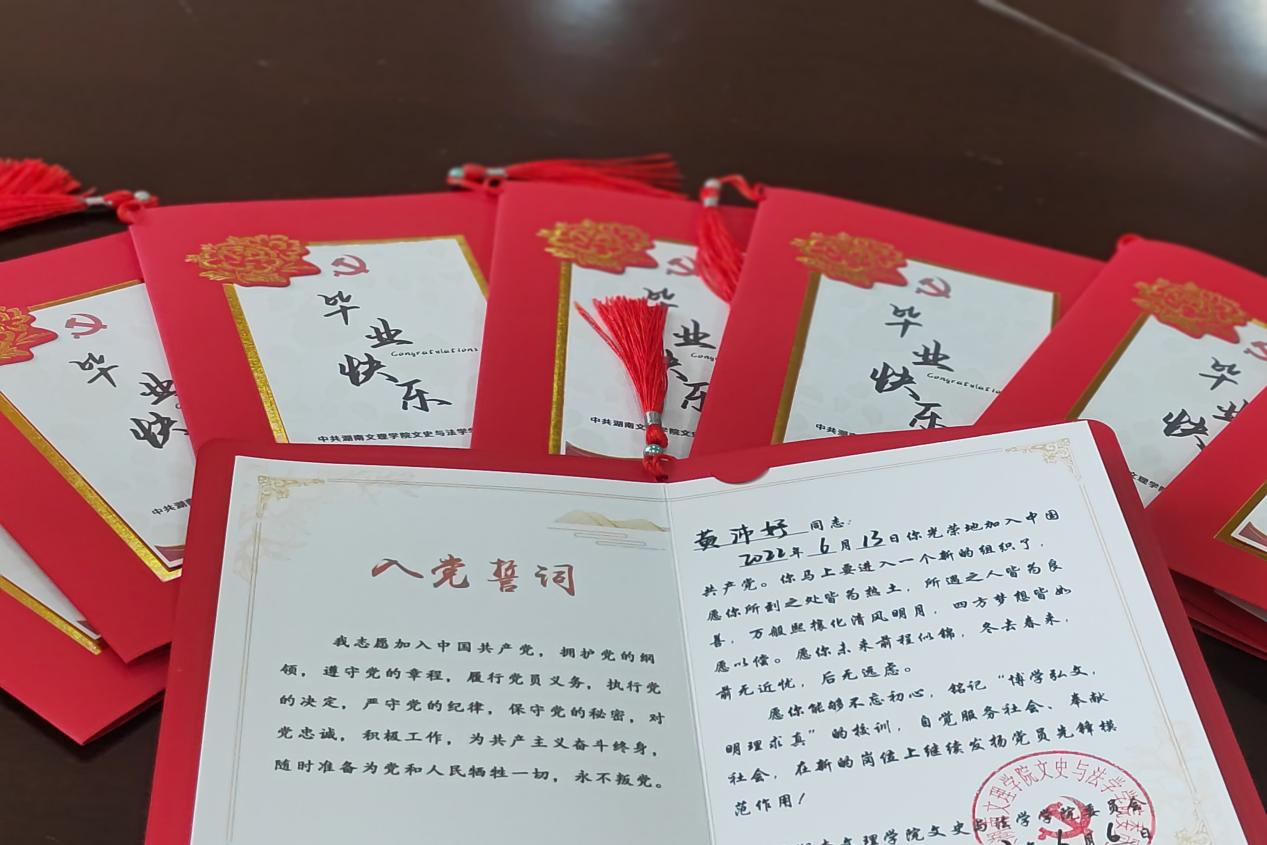 毕业快乐
毕业快乐
Congratulations
中共湖南文理学院文史与法学
毕业快乐
中共湖南文理学院文
毕业快乐
中共湖南文理学院文史与
毕业快
中共湖
入党誓词
我志愿加入中国共产党，拥护党的纲
领，遵守党的章程，履行党员义务，执行党
的决定，严守党的纪律，保守党的秘密，对
党忠诚，积极工作，为共产主义奋斗终身，
随时准备为党和人民牺牲一切，永不叛党。
同志：
2022年6月13日你光荣地加入中国
共产党。你马上要进入一个新的组织了，
愿你所到之处皆为热土，所遇之人皆为良
善，万般熙攘化清风明月，四方梦想皆如
愿以偿。愿你未来前程似锦，冬去春来，
前无近忧，后无远虑。
愿你能够不忘初心，铭记“博学弘文，
明理求真”的校训，自觉服务社会、奉献
社会，在新的岗位上继续发扬党员先锋模
范作用！
文理学院文史与法学学院委员会
6月6日